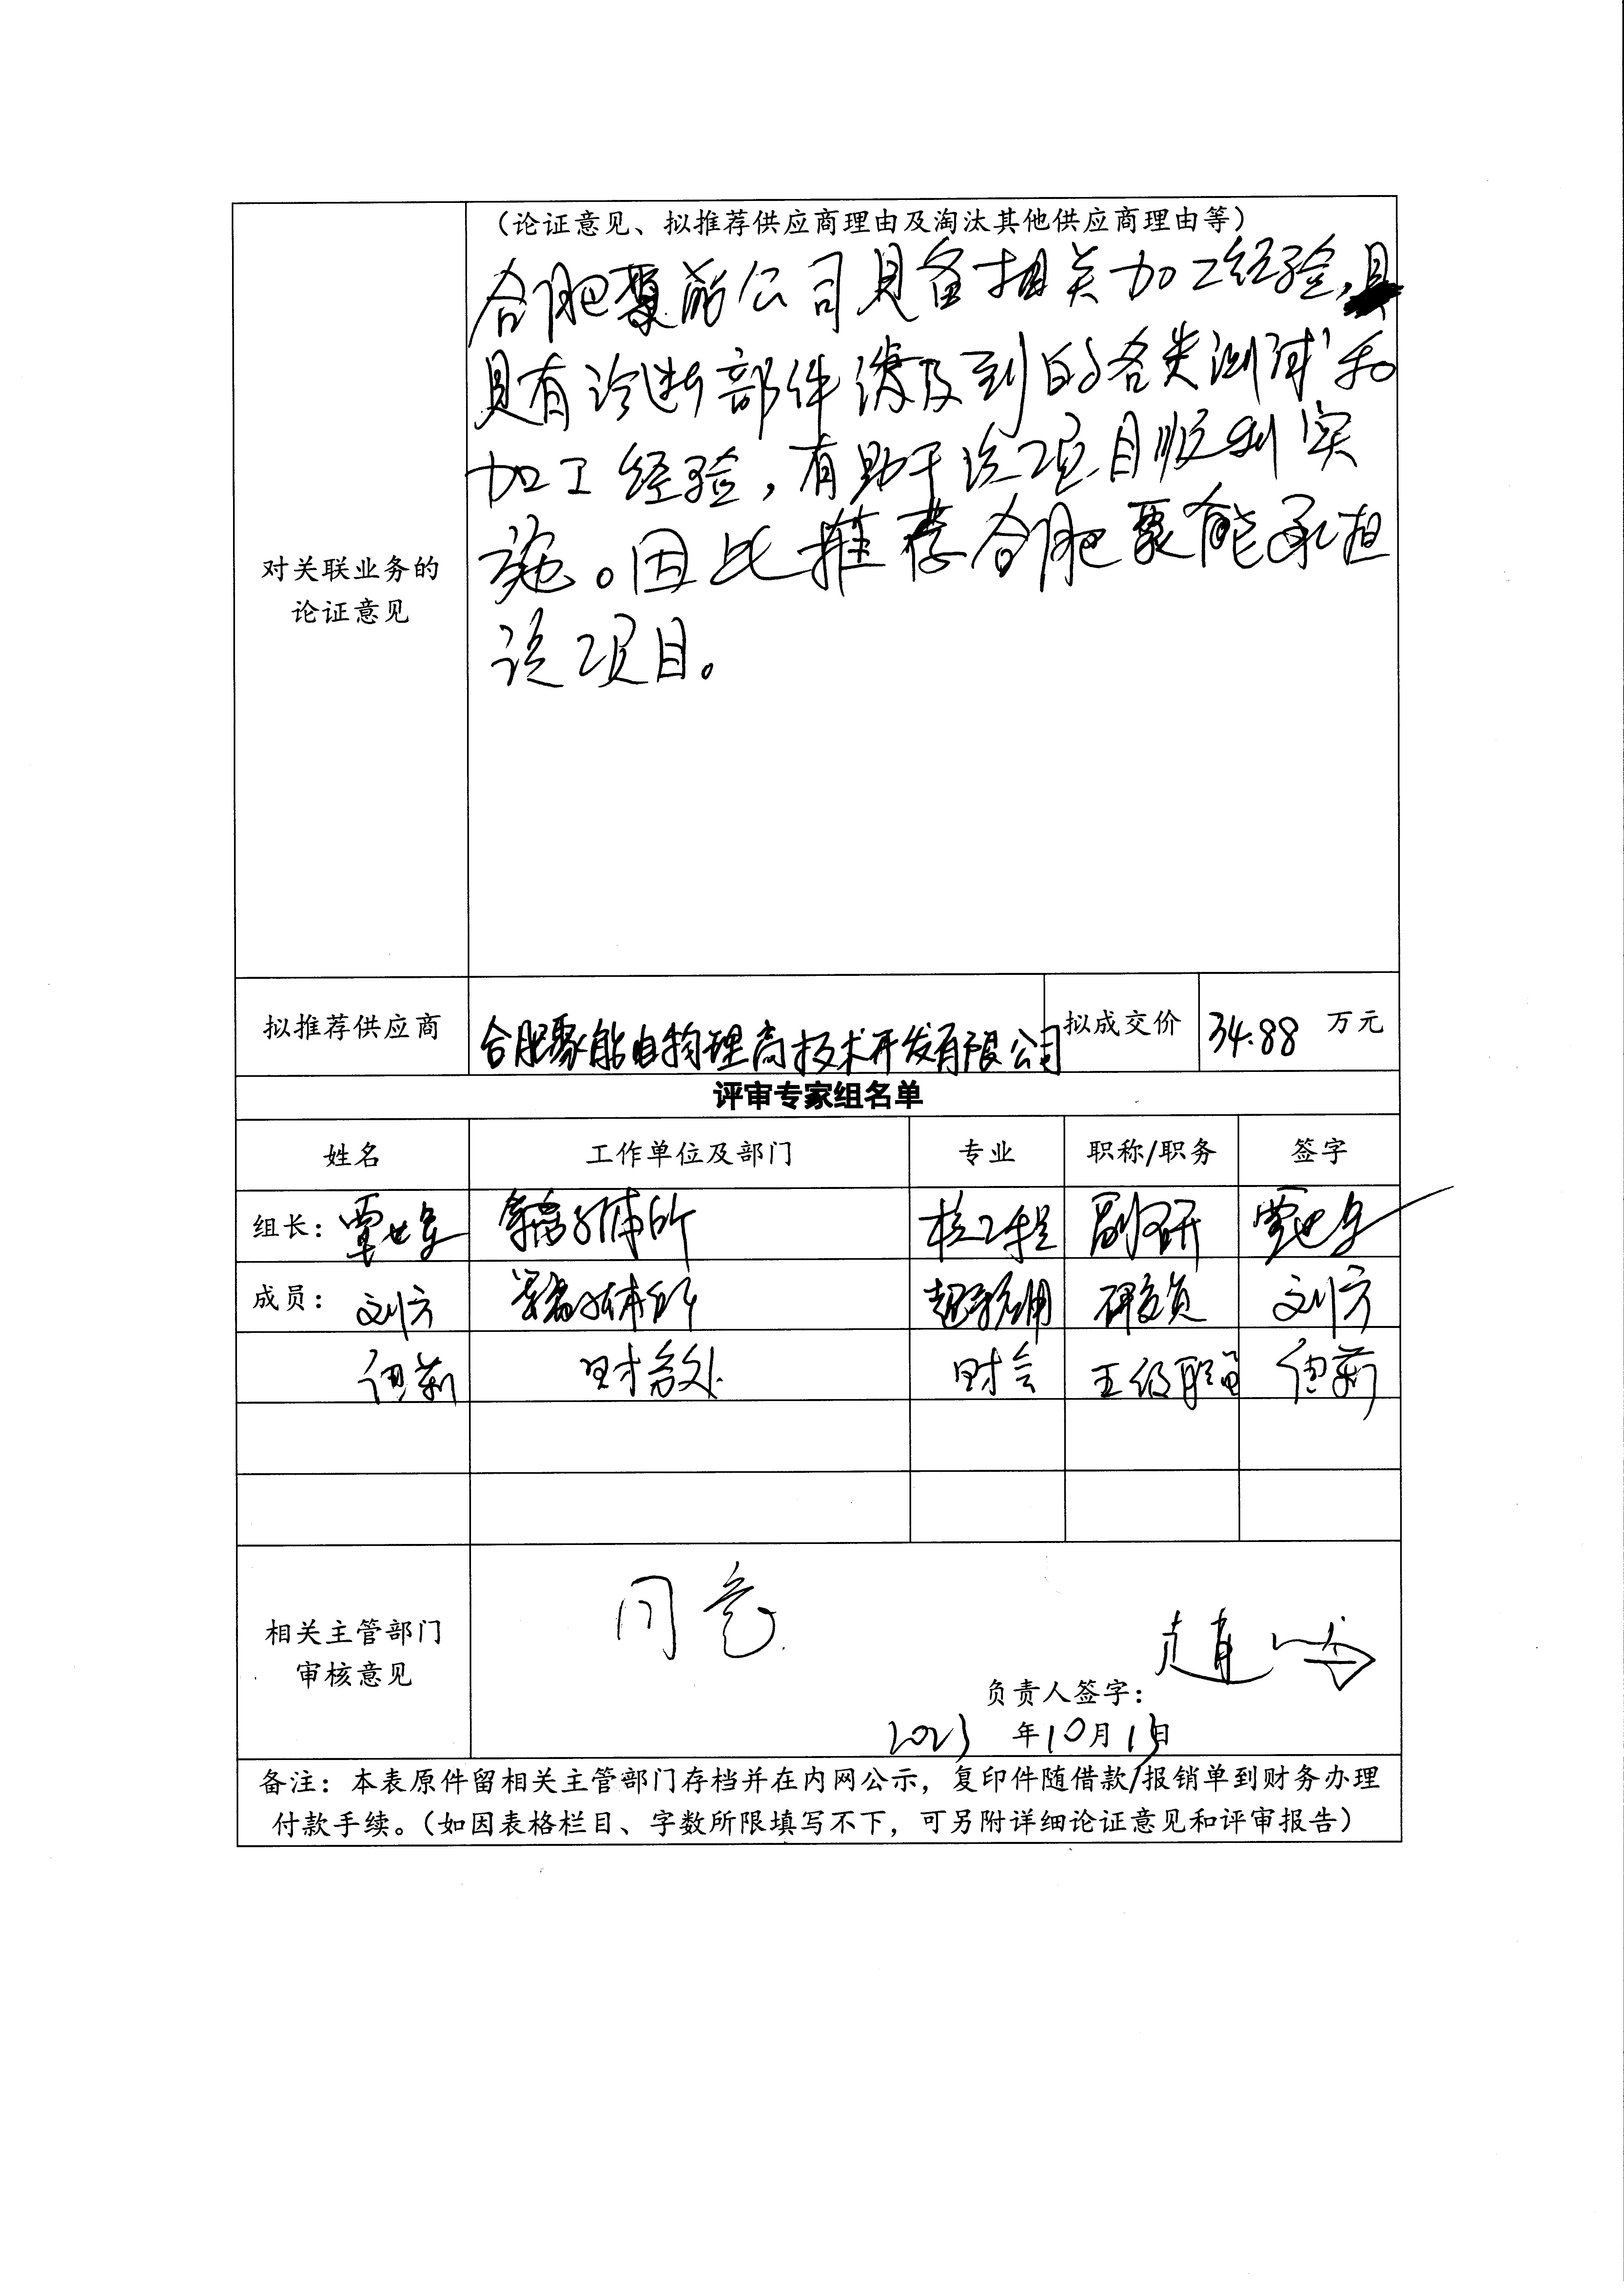 （论证意见、拟推荐供应商理由及淘汰其他供应商理由等）
合肥聚能公司具备相关加工经验，
具有诊断部件涉及到的各类测试和
加工经验，有助于该项目顺利实
施。因此推荐合肥聚能承担
该项目。
对关联业务的
论证意见
拟推荐供应商 合肥聚能电物理高技术开发有限公司 拟成交价 34.88 万元
评审专家组名单
姓名 工作单位及部门 专业 职称/职务 签字
组长：覃世军 等离子体所 核工程 副研 覃世军
成员：刘方 等离子体所 超导应用 研究员 刘方
财务处 财会 五级职员
相关主管部门
审核意见
同意
负责人签字：
2023 年10月13日
备注：本表原件留相关主管部门存档并在内网公示，复印件随借款/报销单到财务办理
付款手续。（如因表格栏目、字数所限填写不下，可另附详细论证意见和评审报告）